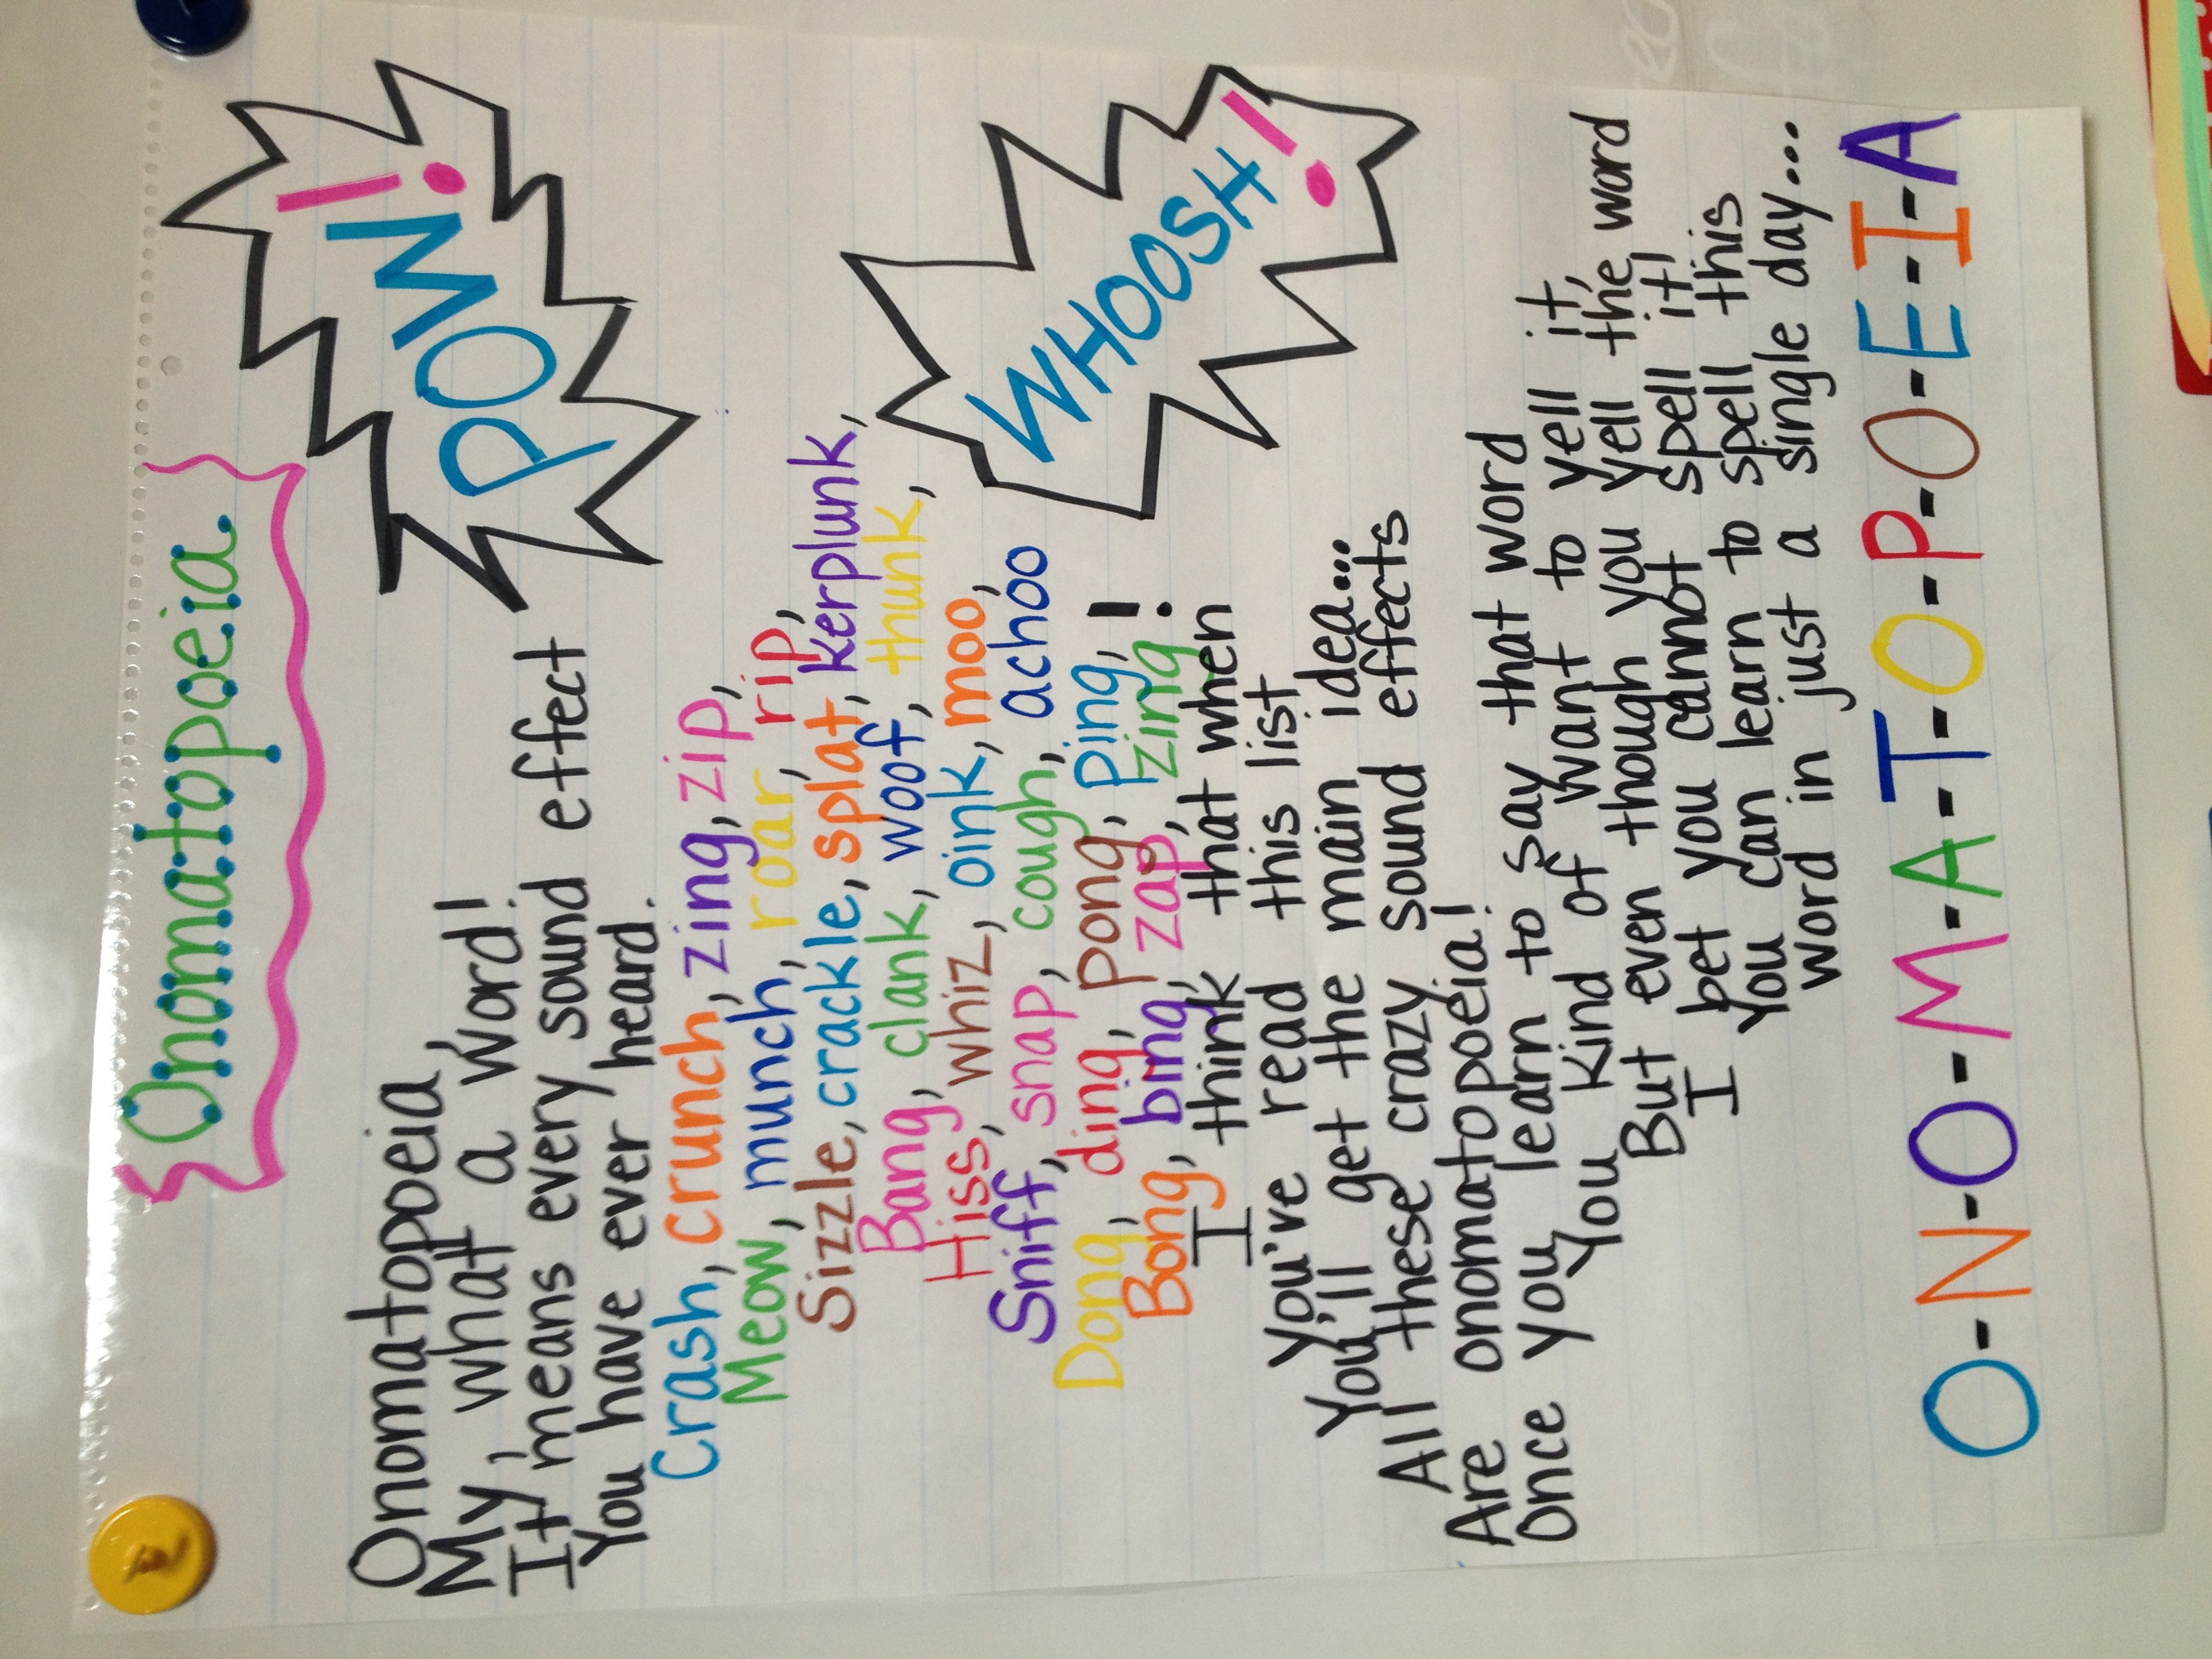 Onomatopoeia
POW!
Onomatopoeia,
My, what a word!
It means every sound effect
You have ever heard.
Crash, crunch, zing, zip,
Meow, munch, roar, rip,
Sizzle, crackle, splat, kerplunk,
Bang, clank, woof, thunk,
Hiss, whiz, oink, moo,
Sniff, snap, cough, achoo
WHOOSH!
Dong, ding, pong, ping,
Bong, bing, zap, zing!
I think that when
you've read this list
You'll get the main idea...
All these crazy sound effects
Are onomatopoeia!
Once you learn to say that word
You kind of want to yell it,
But even though you yell the word
I bet you cannot spell it!
You can learn to spell this
word in just a single day...
O-N-O-M-A-T-O-P-O-E-I-A